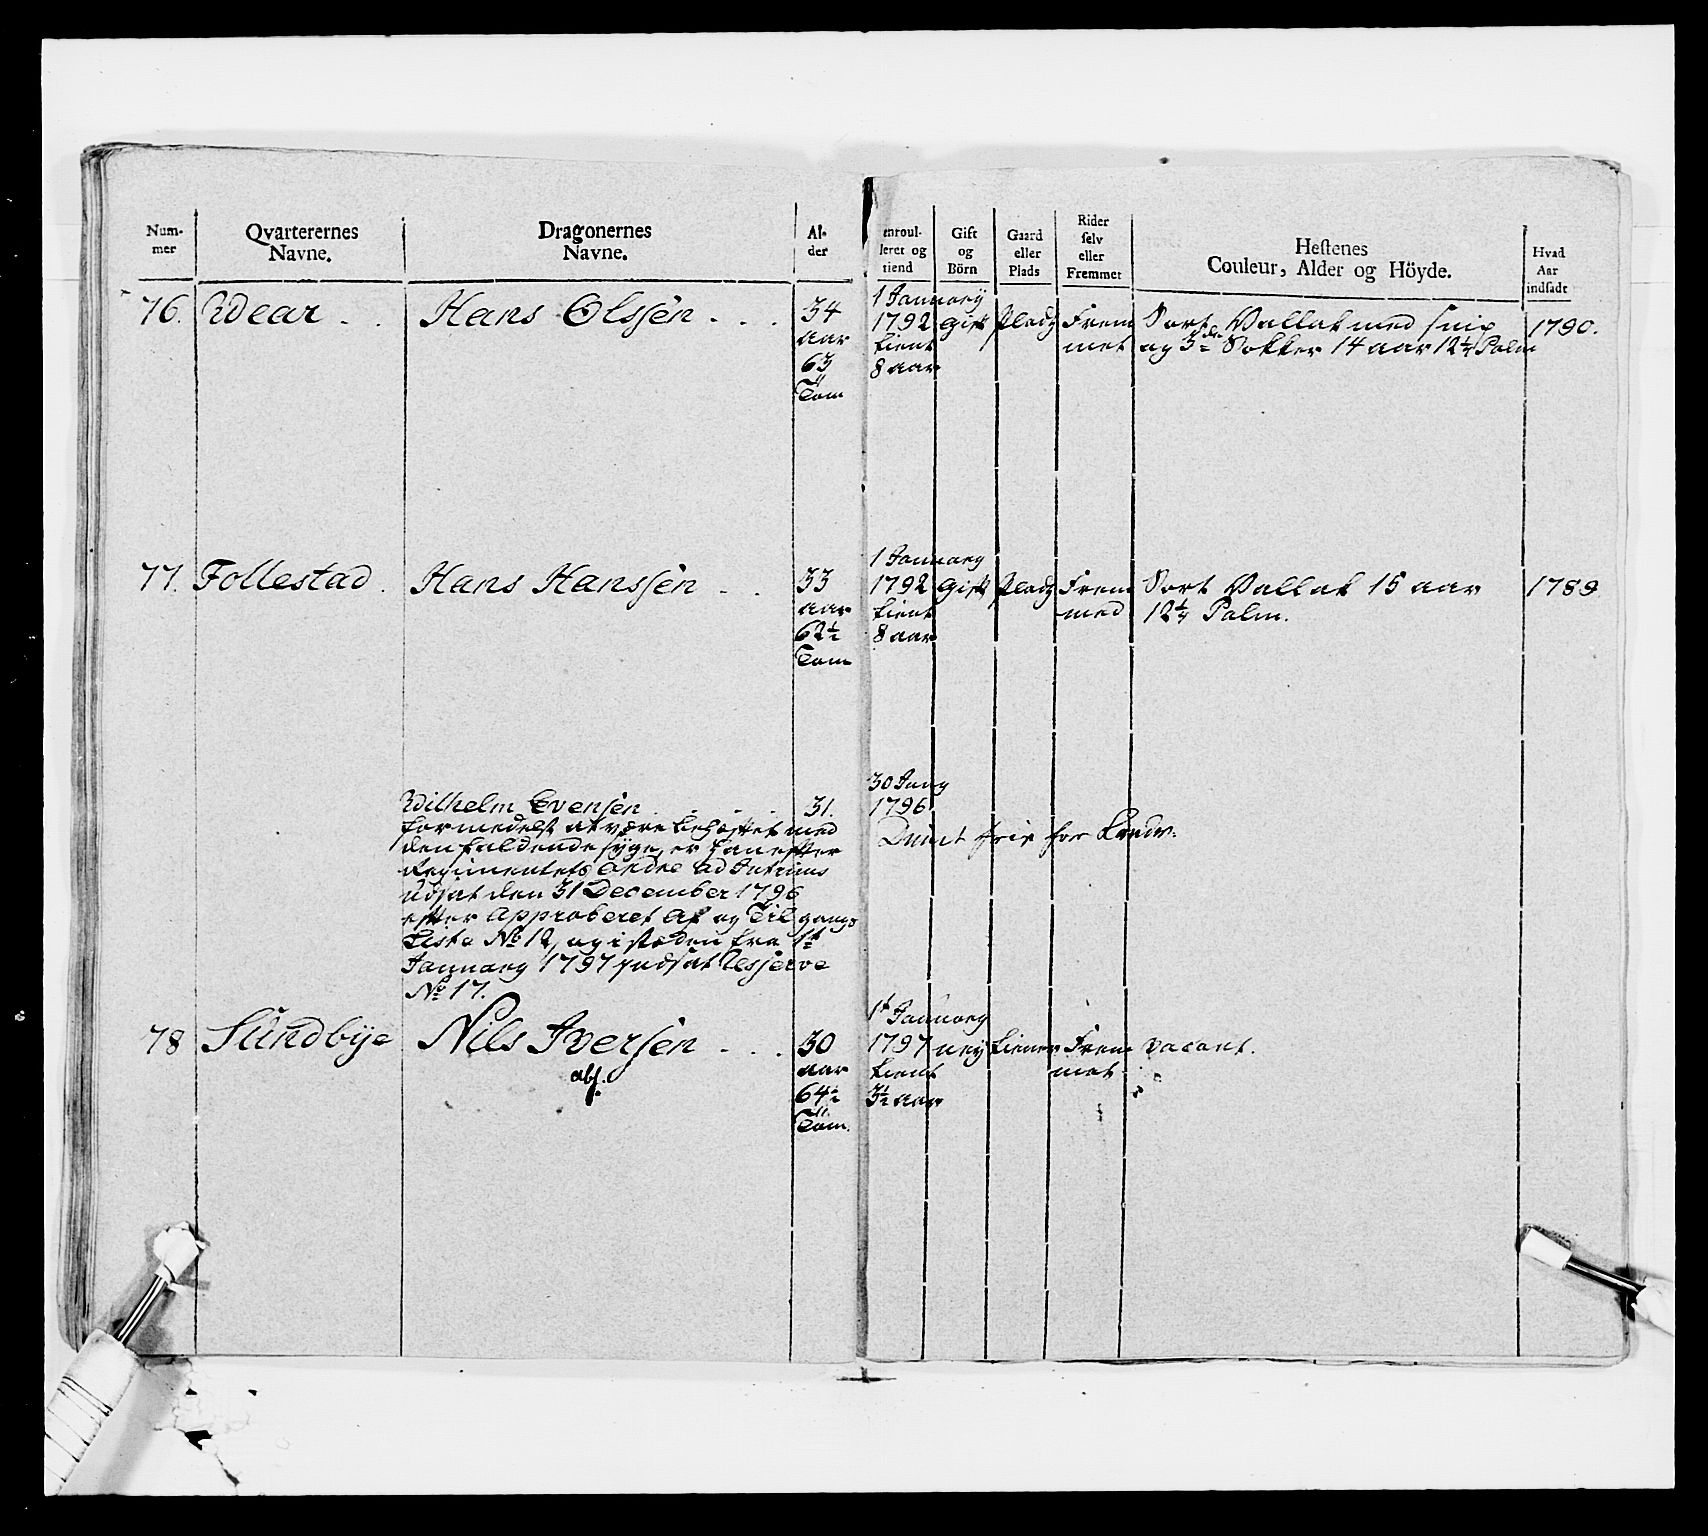 Num-
mer
Qvarterernes
Navne.
Dragonernes
Navne.
Al-
der
enroul-
leret og
tiend
Gift
og
Börn
Gaard
eller
Plads
Rider
selv
eller
Fremmet
Hestenes
Couleur, Alder og Höyde.
Hvad
Aar
indsadt
76. Wear . . Hans Olssen . . .
34
aar
63
Tom
1 January
1792
tient
8 aar
Gift
Pladz
Frem
met
Sort Vallak med snip
og 3de Sokker 14 aar 12¼ Palm
1790.
77. Follestad . Hans Hanssen . .
33
aar
62½
Tom
1 January
1792
tient
8 aar
Gift
Pladz
Frem
med
Sort Vallak 15 aar
12¼ Palm.
1789
Wilhelm Evensen . . . . 31.
formedelst at være behæftet med
den faldende syge, er han efter
Regimentets Ordre ad Intrims
Udsat den 31 December 1796
efter Approberet Af og Til gangs
Liste No 12, og i steden fra 1t
January 1797 indsat Resserve
No 17.
30 Juny
1796.
78 Sundbye Nils Iversen . . .
abs.
30
aar
64½
Tom.
1t January
1797
tient
3½ aar
ney
tiener
Frem
met
vacant.